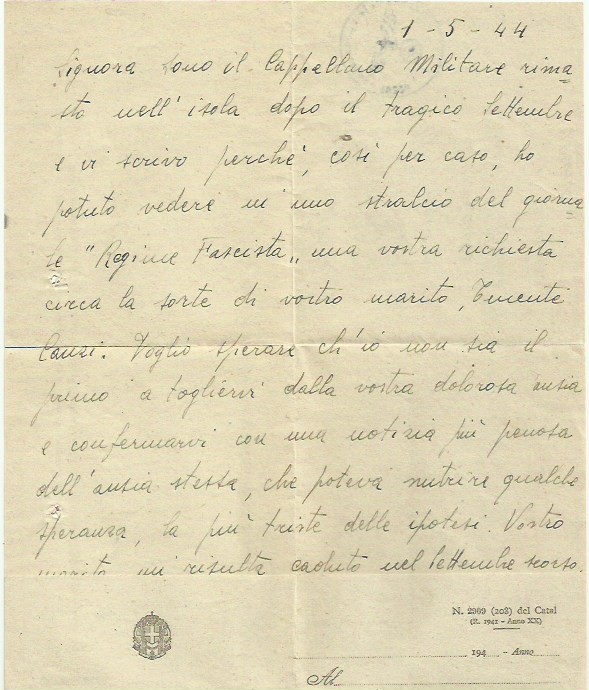 1-5-44
Signora Sono il Cappellano Militare rima-
sto nell'isola dopo il tragico Settembre
e vi scrivo perché, così per caso, ho
potuto vedere in uno stralcio del giorna
le "Regime Fascista" una vostra richiesta
circa la sorte di vostro marito, Tenente
Canzi. Voglio sperare ch'io non sia il
primo a togliervi dalla vostra dolorosa ansia
e confermarvi con una notizia più penosa
dell'ansia stessa, che poteva nutrire qualche
speranza, la più triste delle ipotesi. Vostro
marito mi risulta caduto nel Settembre scorso.
N. 2999 (208) del Catal
(R. 1942 - Anno XX)
194 - Anno
Al